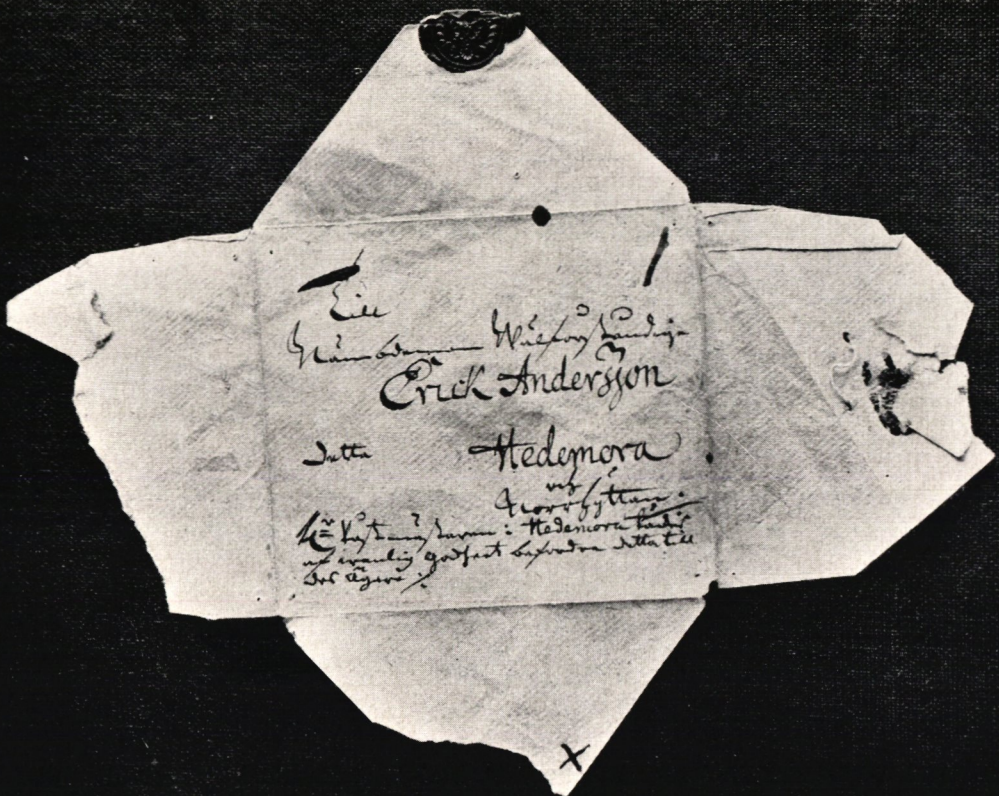 Till
Nämndeman Wälförståndige
Erick Andersson
Detta Hedemora
och
Norrhyttan.
Hr Postmästaren i Hedemora täcktes
af wanlig godhet befordra detta till
des ägare
X